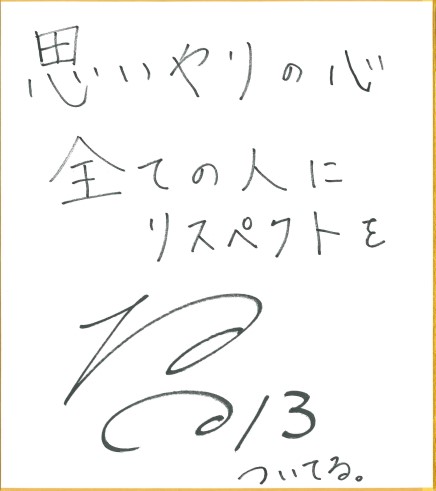 思いやりの心
全ての人に
リスペクトを
/3
ついてる。